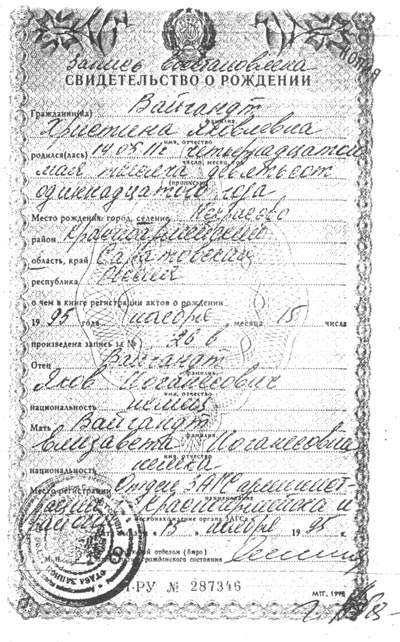 Запись восстановлена
КОПИЯ
СВИДЕТЕЛЬСТВО О РОЖДЕНИИ
Гражданин(ка) Вайгандт
фамилия
Христина Яковлевна
имя, отчество
родился(лась) 14.05.11г. четырнадцатого
число, месяц, год
мая тысяча девятьсот
(прописью)
одиннадцатого года
Место рождения: город, селение Некрасово
район Красноармейский
область, край Саратовская
республика Россия
о чем в книге регистрации актов о рождении
1995 года ноября месяца 15 числа
произведена запись за № 26 в
Отец Вайгандт
фамилия
Яков Иоганесович
имя, отчество
национальность немец
Мать Вайгандт
фамилия
Елизавета Иоганесовна
имя, отчество
национальность немка
Место регистрации Отдел ЗАГС администрации
наименование
Красноармейска и
района
местонахождение органа ЗАГСа
15 ноября 1995г.
М.П.
отделом (бюро)
гражданского состояния
-РУ № 287346